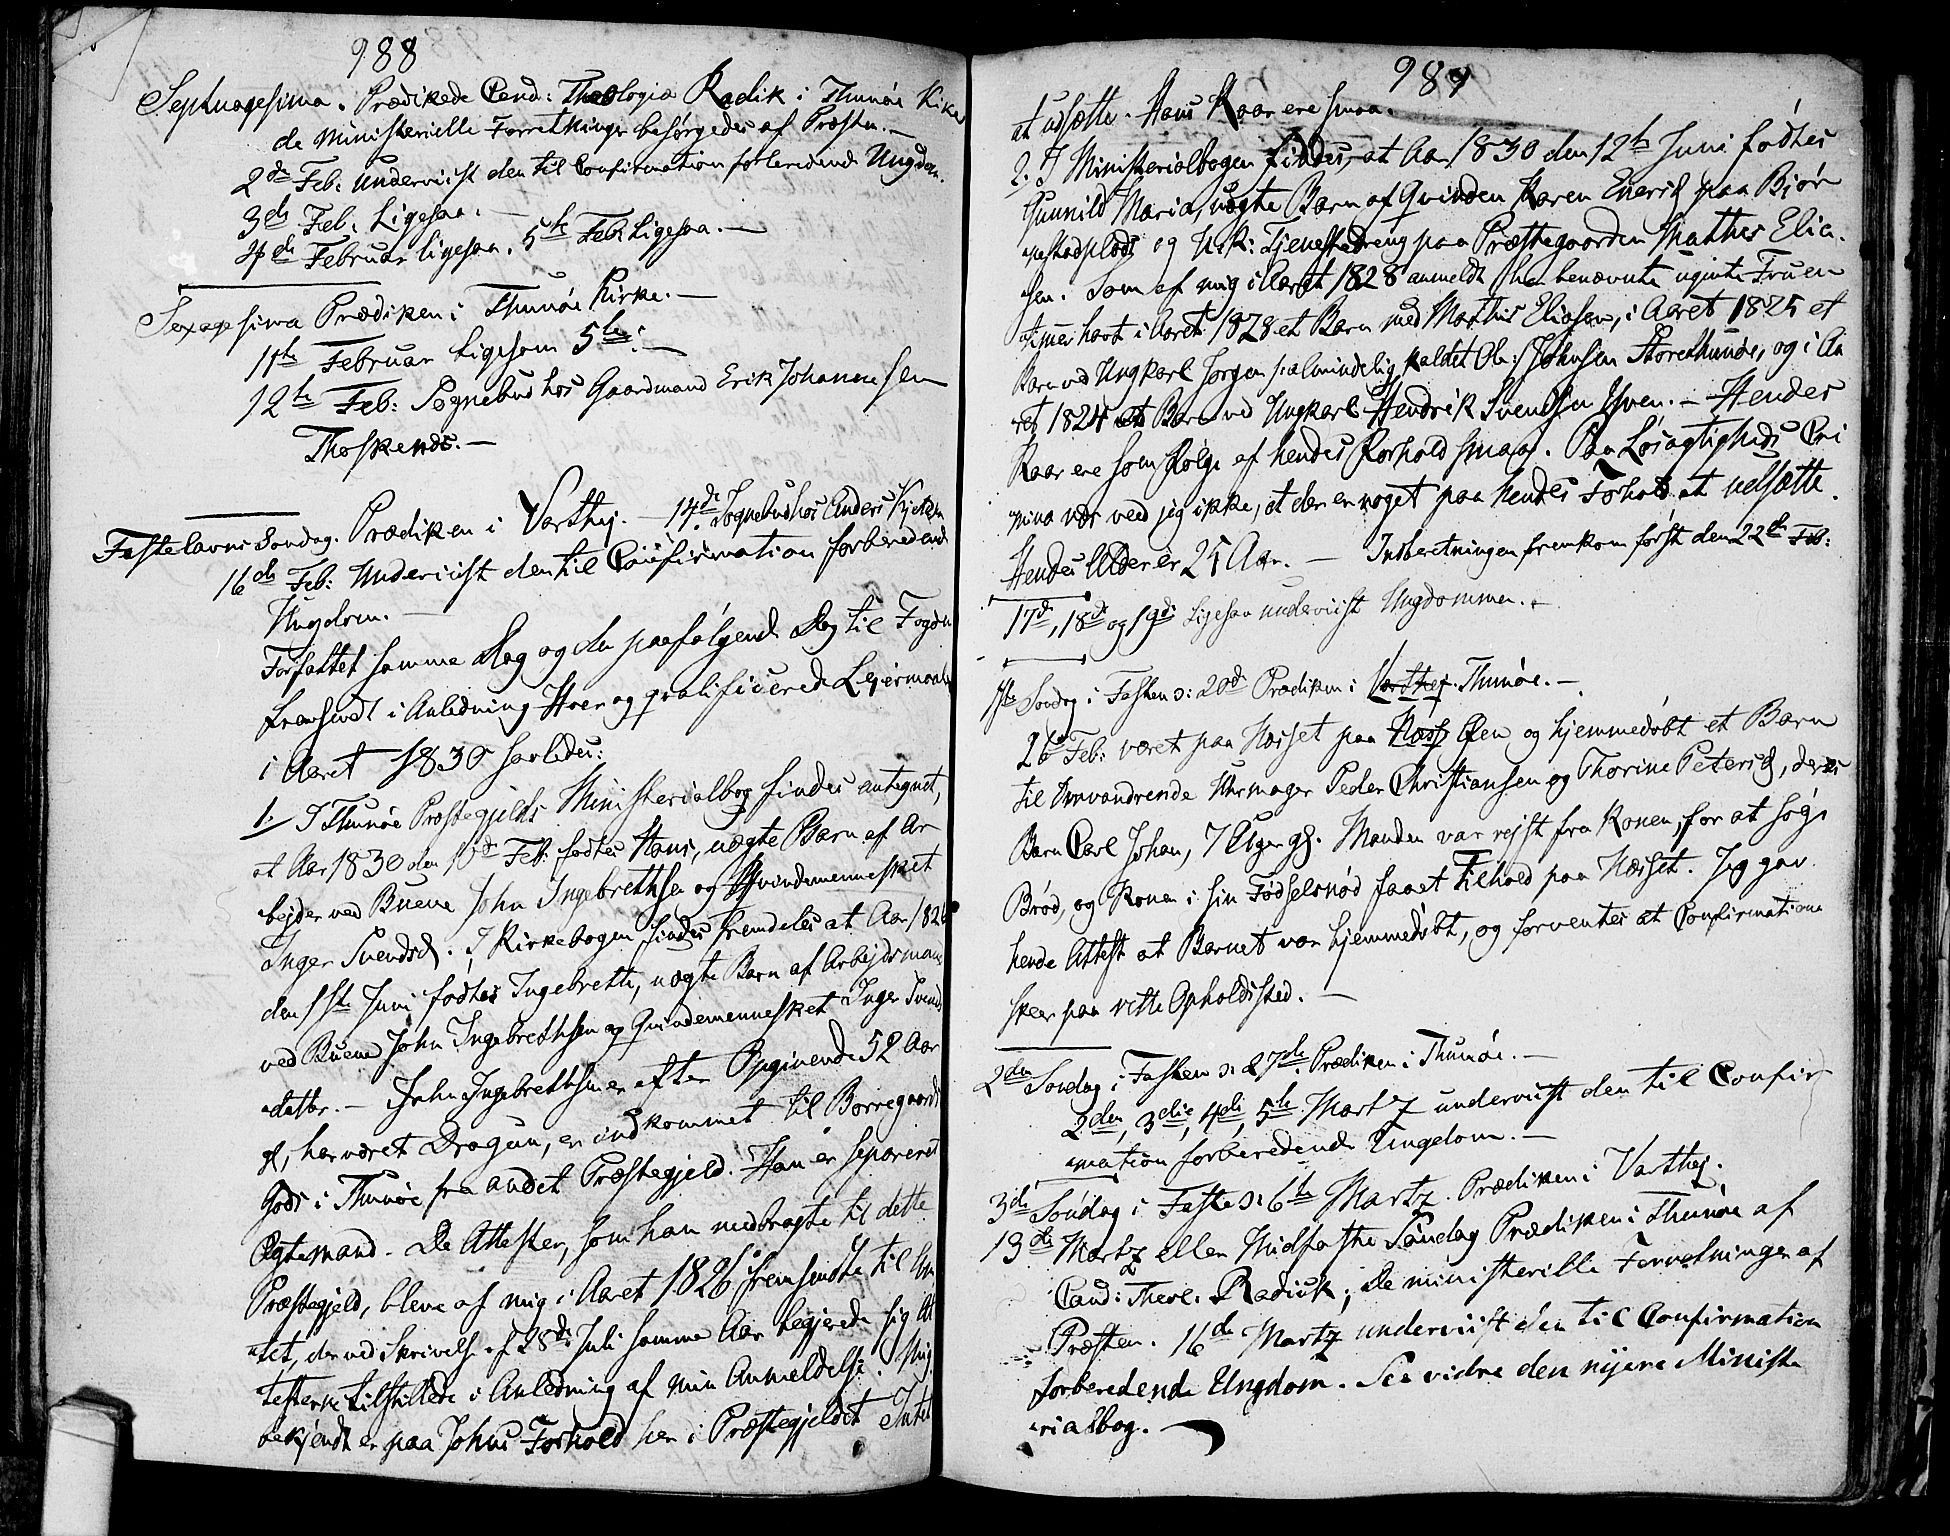 988
Septuagesima. Prædikede Cand: Theologiæ Radik i Thunøe Kirke
de Ministerielle Forretninger besørgedes af Præsten.—
2de Feb: Underviist den til Confirmation forberedende Ungdom.
3de Feb: Ligesaa.—
4de Februar ligesaa. 5te Feb: Ligesaa.—
Sexagesima Prædiken i Thunøe Kirke.—
11te Februar Ligesom 5te.—
12te Feb: Sognebud hos Gaardmand Erik Johannesen
Thoskends.—
Fastelavns Søndag. Prædiken i Varthej.— 14de Sognebud hos Anders
16de Feb: Underviist den til Confirmation forberedende
Ungdom.—
Forfattet samme Dag og den paafølgende Dag til Fogden
fremsendt i Anledning Hver og qvalificerede Lejermaal
i Aaret 1830 saaledes:
1. I Thunøe Præstegjelds Ministerialbog findes antegnet,
at Aar 1830 den 10de Feb: fødtes Hans, uægte Barn af Ar-
bejder ved Buene John Ingebrethsen og Qvindemennesket
Inger Svendsd. I Kirkebogen findes fremdeles at Aar 1826
den 1ste Juni fødtes Ingebrette, uægte Barn af Arbejdsmand
ved Buene John Ingebrethsen og Qvindemennesket Inger Svends
datter.— John Ingebrethsen er efter Opgivende 52 Aar
gl, har været Dragun, er indkommet til Borregaards
Gods i Thunøe fra andet Præstegjeld. Han er separeret
Egtemand. De Attester, som han medbragte til dette
Præstegjeld, bleve af mig i Aaret 1826 fremsendte til Am
tet, der ved Skrivelse af 28de Juli samme Aar begjerede sig At
testerne tilstillede i Anledning af min Anmeldelse. Mig
bekjendt er paa Johns Forhold her i Præstegjeldet Intet
989
at udsætte. Hans Kaar ere smaa.
2. I Ministerialbogen findes, at Aar 1830 den 12te Juni fødtes
Gunnild Maria, uægte Barn af Qvinden Karen Enersd paa Bjør
nestadplads og U.K: Tjenestedreng paa Præstegaarden Matthis Elia-
sen. Som af mig i Aaret 1828 anmeldt har benævnte ugivte Fruen
timer havt i Aaret 1828 et Barn med Mathis Eliasen, i Aaret 1825 et
Barn ved Ungkarl Jørgen, almindelig kaldet Ole Johnsen Storethunøe, og i Aa
ret 1824 et Barn ved Ungkarl Hendrik Svendsen Hven.— Hendes
Kaar ere som Følge af hendes Forhold smaa. Paa Løsagtigheds Cri
mina nær ved jeg ikke, at der er noget paa hendes Forhold at udsætte.
Hendes Alder er 25 Aar.— Indberetningen fremkom først den 22de Feb:
17de, 18de og 19de Ligesaa underviist Ungdommen.—
1ste Søndag i Fasten ɔ: 20de Prædiken i Varthej. Thunøe.—
26de Feb: været paa Næsset paa Næss Øen og hjemmedøbt et Barn
til Omvandrende Uhrmager Peder Christiansen og Thorine Petersd, deres
Barn Carl Johan, 7 Uger gl. Manden var rejst fra Konen, for at søge
Brød, og Konen i sin Fødselsnød faaet Tilhold paa Næsset. Jeg gav
hende Attest at Barnet var hjemmedøbt, og forventes at Confirmationen
skeer paa rette Opholdssted.—
2den Søndag i Fasten ɔ: 27de Prædiken i Thunøe.—
2den, 3die, 4de, 5te Martz underviist den til Confir-
mation forberedende Ungdom.—
3de Søndag i Faste ɔ: 6te Martz. Prædiken i Varthej.
13de Martz eller Midfaste Søndag Prædiken i Thunøe af
Cand: Theol: Radick; De ministerielle Forretninger af
Præsten. 16de Martz underviist den til Confirmation
forberedende Ungdom. See vidre den nyere Ministe
rialbog.—